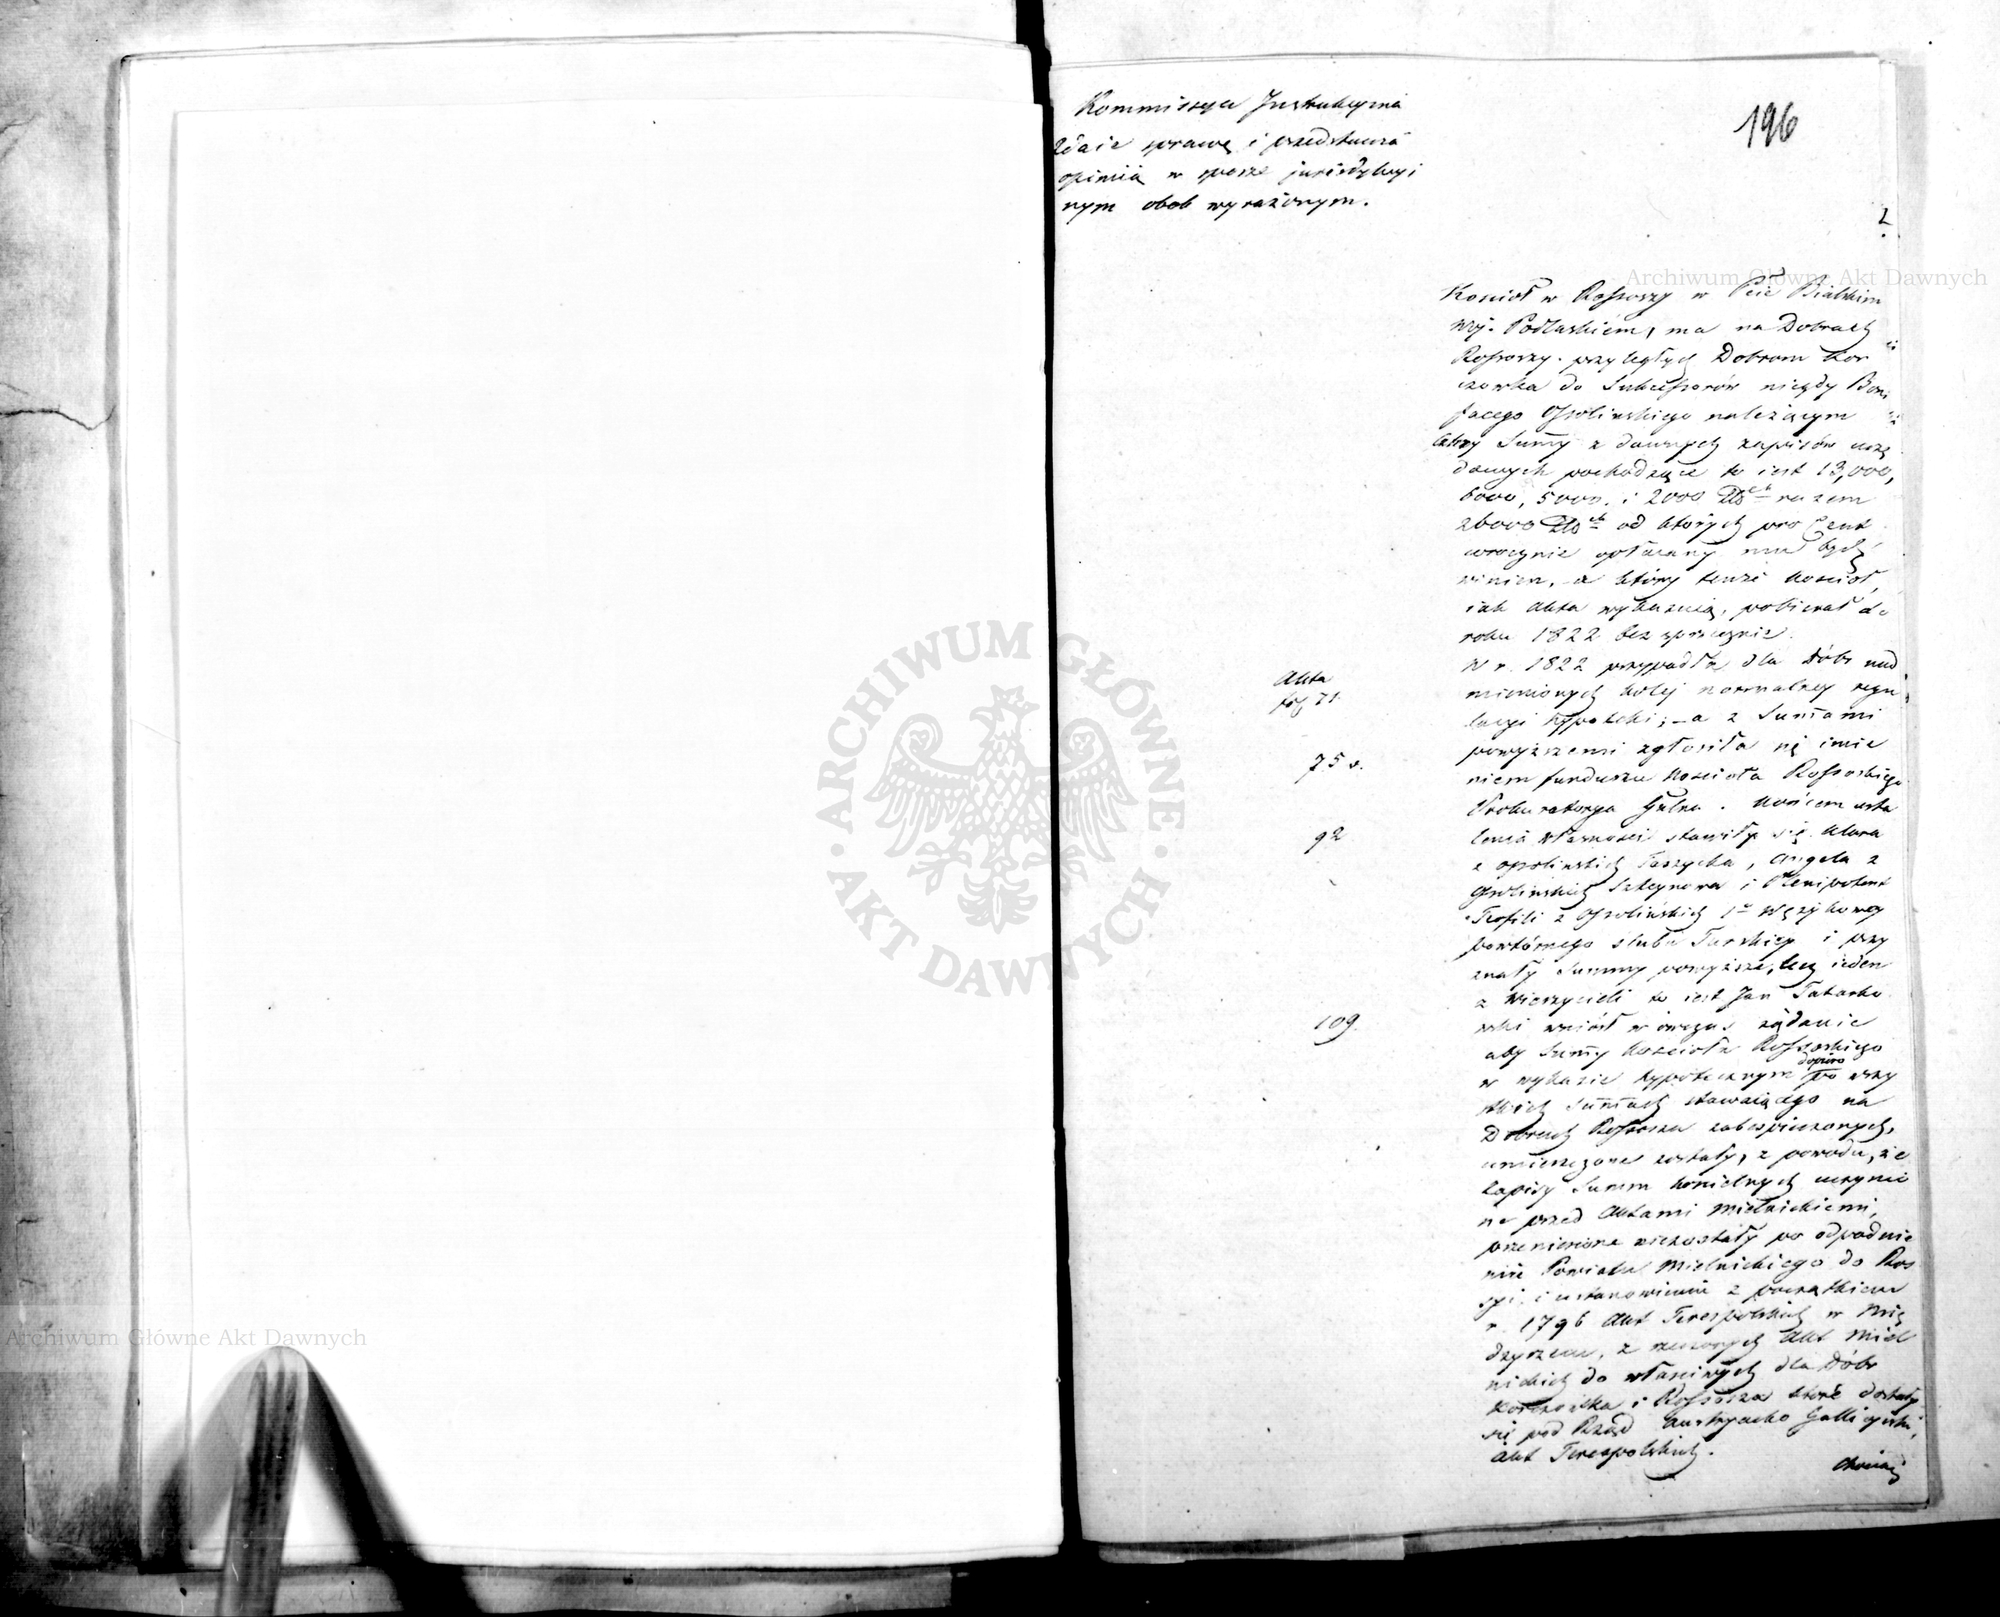 Kommissya Instrukcyina
zdaie sprawę i przedstawia
opinią w sporze jurisdykcyi
nym obok wyrażonym.
196
Kościoł w Rossoszy w Pcie Bialskim
Wój. Podlaskiém, ma na Dobrach
Rossoszy przyległych Dobrom Kor
czowka do Sukcessorów niegdy Boni
facego Ossolinskiego należącym
cztery Summy z dawnych zapisów
dowych pochodzące to iest 13,000,
6000, 5000, i 2000 Złoch razem
26000 Złoch od których procent
corocznie opłacany mu bydź
winien, a który tenże Kościoł,
iak Akta wykazuią, pobierał do
roku 1822 bez sprzecznie.
W r. 1822 przypadła dla Dóbr nad
mienionych koley normalney regu
lacyi hypoteki; – a z Summami
powyższemi zgłosiła się imie
niem funduszu Kościoła Rossoskiego
Prokuratorya Gralna. Końcem usta
lenia własności stawiły się Klara
z Ossolinskich Taszycka, Angela z
Ossolinskich Szteynowa i Plenipotent
Teofili z Ossolińskich 1o Wężykowey
powtórnego slubu Turskiey i przy
znały Summy powyższe, lecz ieden
z Wierzycieli to iest Jan Tatarko
wski wniósł wówczas żądanie
aby Summy Kościoła Rossoskiego
w wykazie hypotecznym dopiéro po wszy
stkich Summach stawaiącego na
Dobrach Rossosza zabespieczonych,
umieszczone zostały, z powodu, że
zapisy Summ kościelnych uczynio
ne przed Aktami Mielnickiemi,
przeniesione niezostały po odpadnie
niu Powiatu Mielnickiego do Ros
syi i ustanowieniu z początkiem
r. 1796 Akt Terespolskich w Mię
dzyrzecu, z rzeczonych Akt Miel
nickich do właściwych dla Dóbr
Korczówka i Rossosza które dostały
się pod Rząd Austryacko Gallicyiski,
Akt Terespolskich.
chociaż
Akta
fol 71.
75 v.
92
109.
Archiwum Główne Akt Dawnych
Archiwum Główne Akt Dawnych
ARCHIWUM GŁÓWNE
AKT DAWNYCH